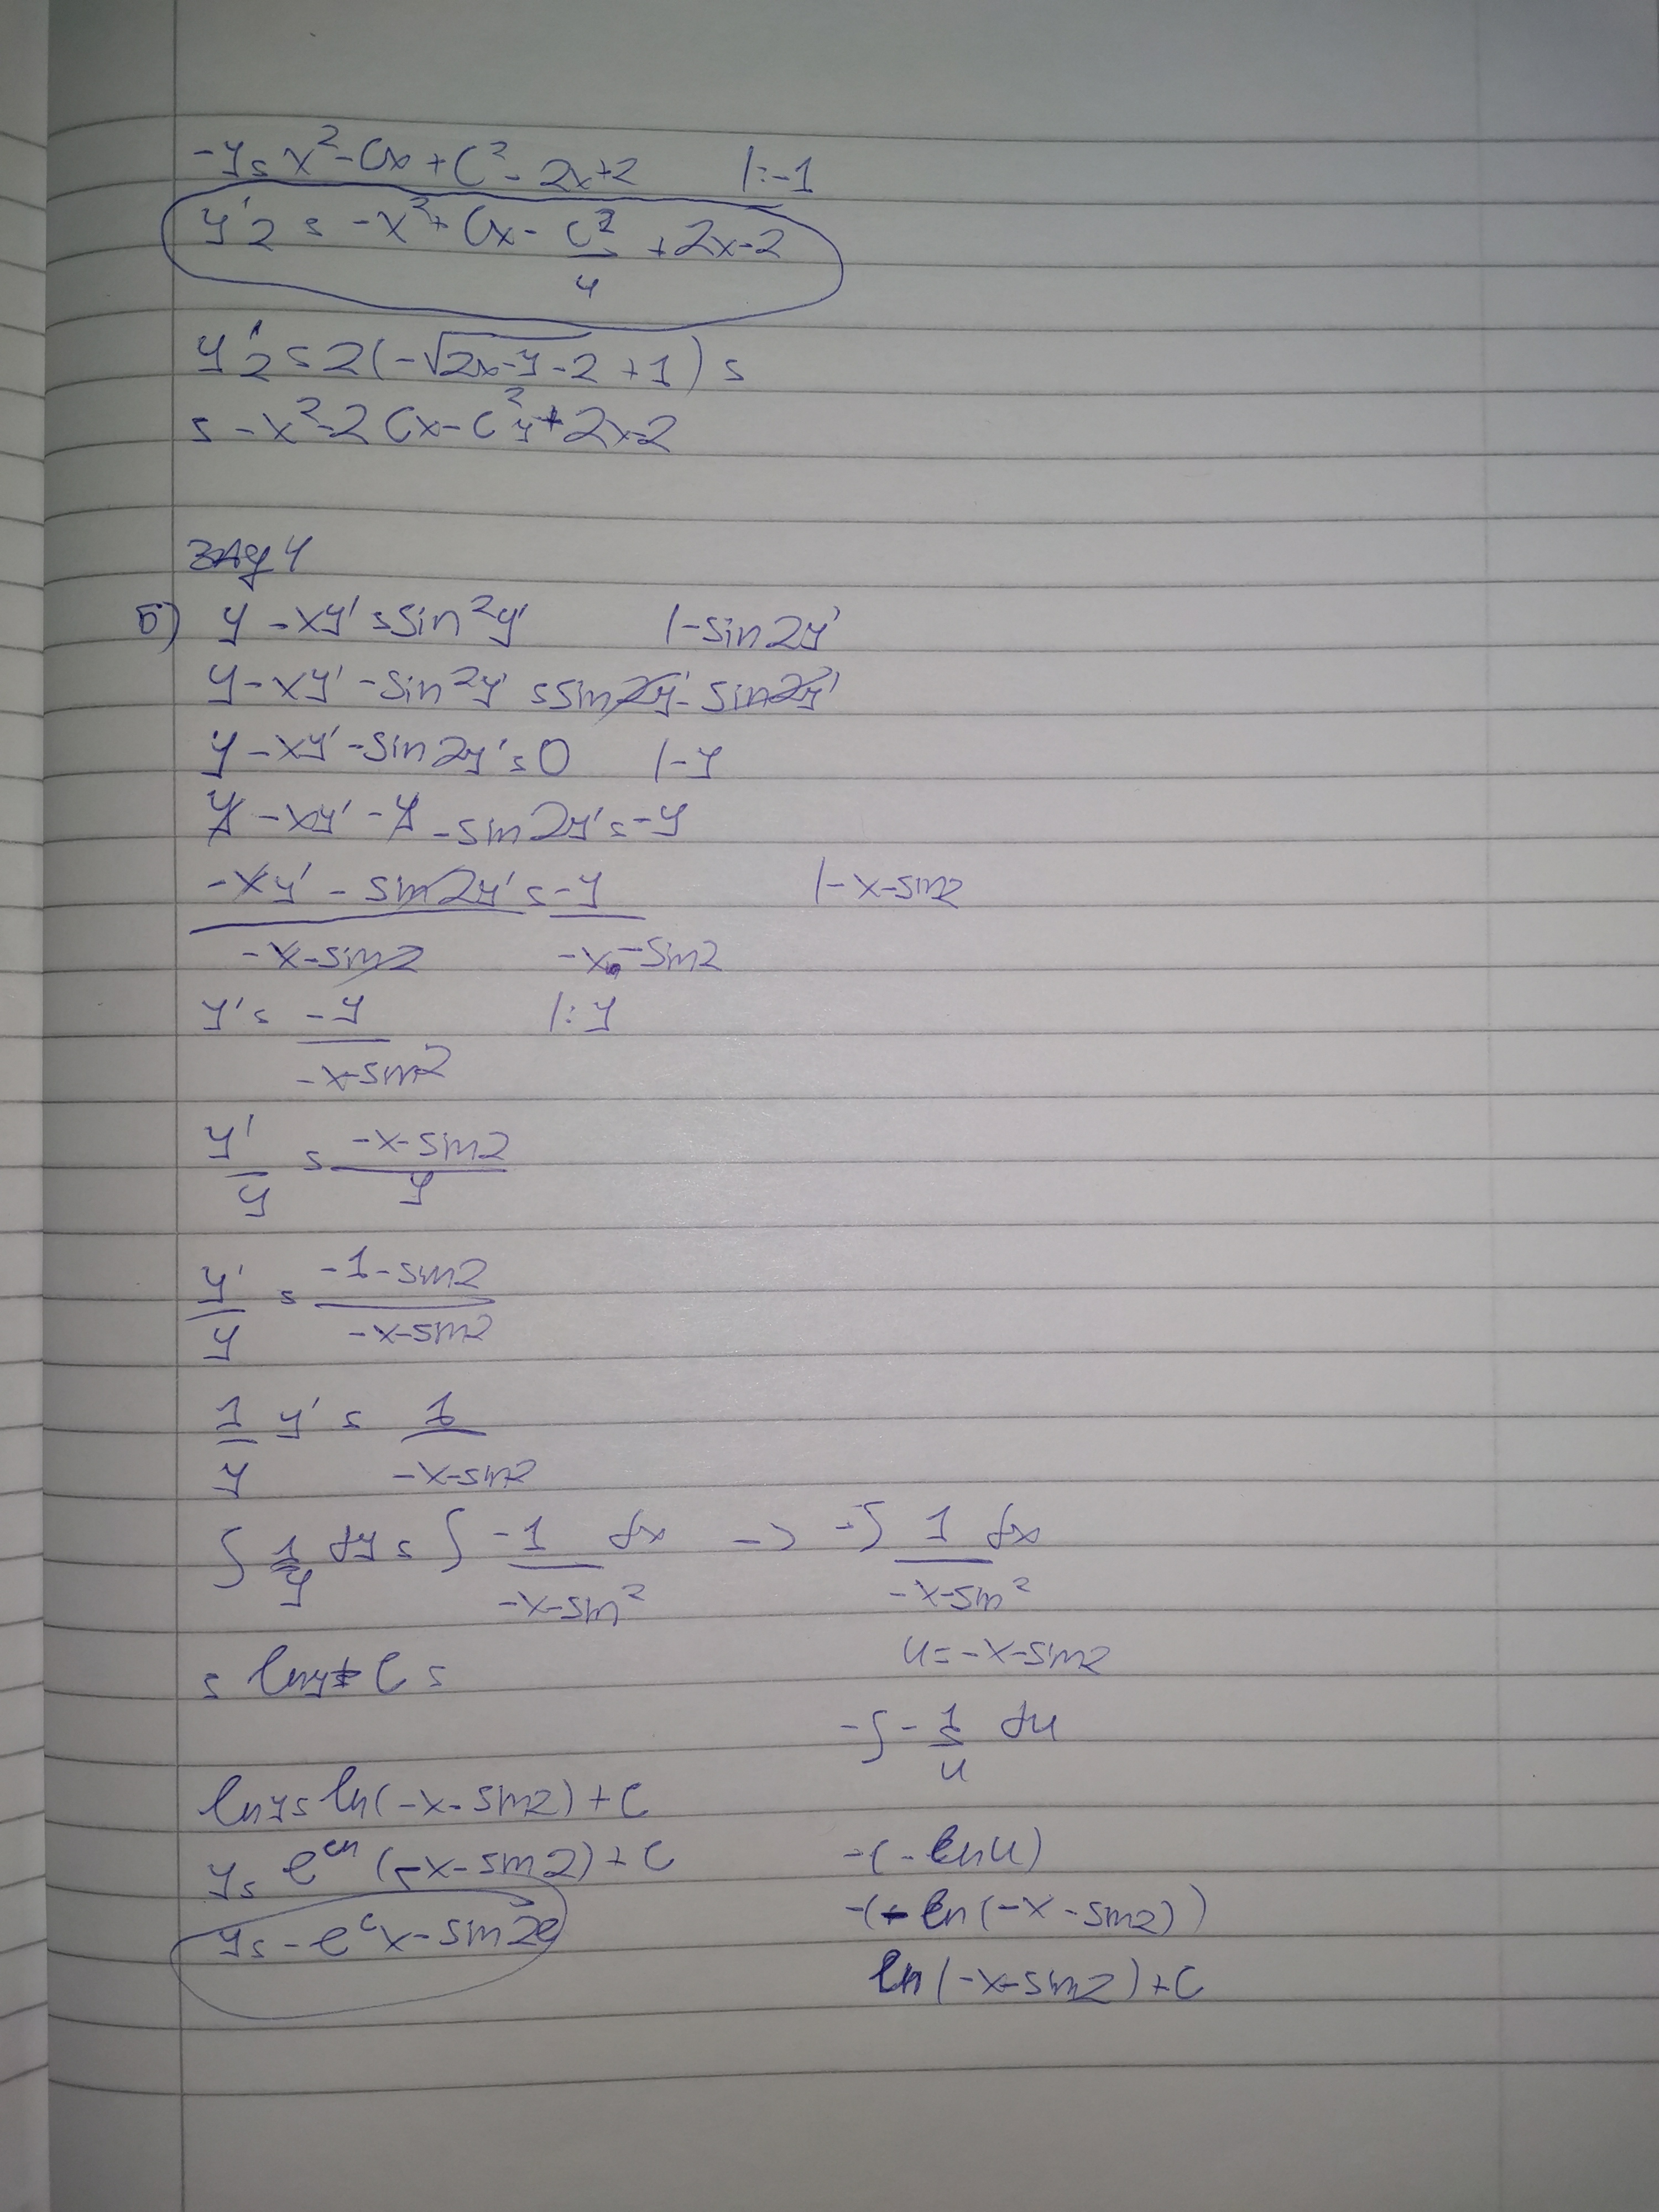 -y = x² - Cx + C² - 2x + 2 |:-1
y'₂ = -x² + Cx - C²/4 + 2x - 2
y'₂ = 2(-√(2x-y-2) + 1) =
= -x² - 2Cx - C²y + 2x - 2
зад 4
б) y - xy' = sin²y' |-sin2y'
y - xy' - sin²y' = sin2y' - sin2y'
y - xy' - sin2y' = 0 |-y
y - xy' - y - sin2y' = -y
-xy' - sin2y' = -y |-x-sin2
-x-sin2 -x-sin2
y' = -y |:y
-x-sin2
y'/y = -x-sin2/y
y'/y = -1-sin2/-x-sin2
1/y y' = 1/-x-sin2
∫ 1/y dy = ∫ -1/-x-sin² dx -> -∫ 1/-x-sin² dx
u = -x-sin2
= lny + C =
-∫ - 1/u du
lny = ln(-x-sin2) + C
-(-lnu)
y = e^ln (-x-sin2) + C
-(-ln(-x-sin2))
y = -e^c x - sin2e
ln(-x-sin2) + C